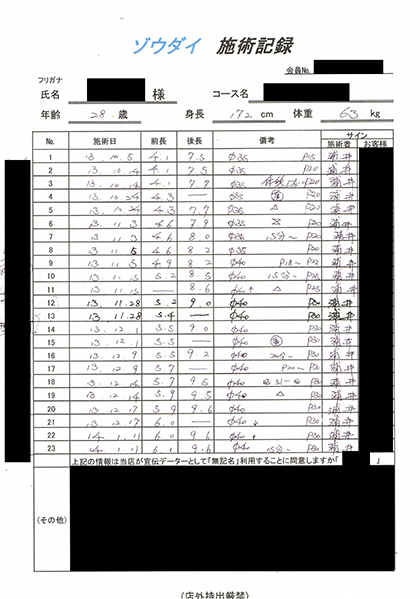 ゾウダイ 施術記録
会員No.
フリガナ
氏名 様 コース名
年齢 28 歳 身長 172 cm 体重 63 kg
No. 施術日 前長 後長 備考 サイン
施術者 お客様
1 13.10.5 4.1 7.5 φ35 P15 浦井
2 13.10.14 4.1 7.5 φ35 P20 浦井
3 13.10.14 4.1 7.7 φ35 P20 浦井
4 13.10.24 4.3 — φ35 P20 浦井
5 13.10.24 4.3 7.7 φ35 △ P20 浦井
6 13.11.3 4.6 7.9 φ35 P20 浦井
7 13.11.3 4.6 8.0 φ35 15分~ P20 浦井
8 13.11.5 4.6 8.2 φ35 P20 浦井
9 13.11.5 4.9 8.2 φ40 P18~P22 浦井
10 13.11.15 5.2 8.5 φ40 15分~ P25 浦井
11 13.11.15 — 8.6 φ40↑ △ P25 浦井
12 13.11.28 5.2 9.0 φ40 P30 浦井
13 13.11.28 5.4 — φ40 P30 浦井
14 13.12.1 5.5 9.0 φ40 P30 浦井
15 13.12.1 5.5 — φ40 P30 浦井
16 13.12.9 5.5 9.2 φ40 20分~ P30 浦井
17 13.12.9 5.7 — φ40 P20~P30 浦井
18 13.12.14 5.7 9.5 φ40 P30 浦井
19 13.12.14 5.9 9.5 φ40 △ P30 浦井
20 13.12.17 5.9 9.6 φ40 P30 浦井
21 13.12.17 6.0 — φ40↓ P30 浦井
22 14.1.11 6.0 9.6 φ40↓ P30 浦井
23 14.1.11 6.1 9.6 φ40 15分~ P30 浦井
上記の情報は当店が宣伝データーとして「無記名」利用することに同意しますか「 」
(その他)
(店外持出厳禁)